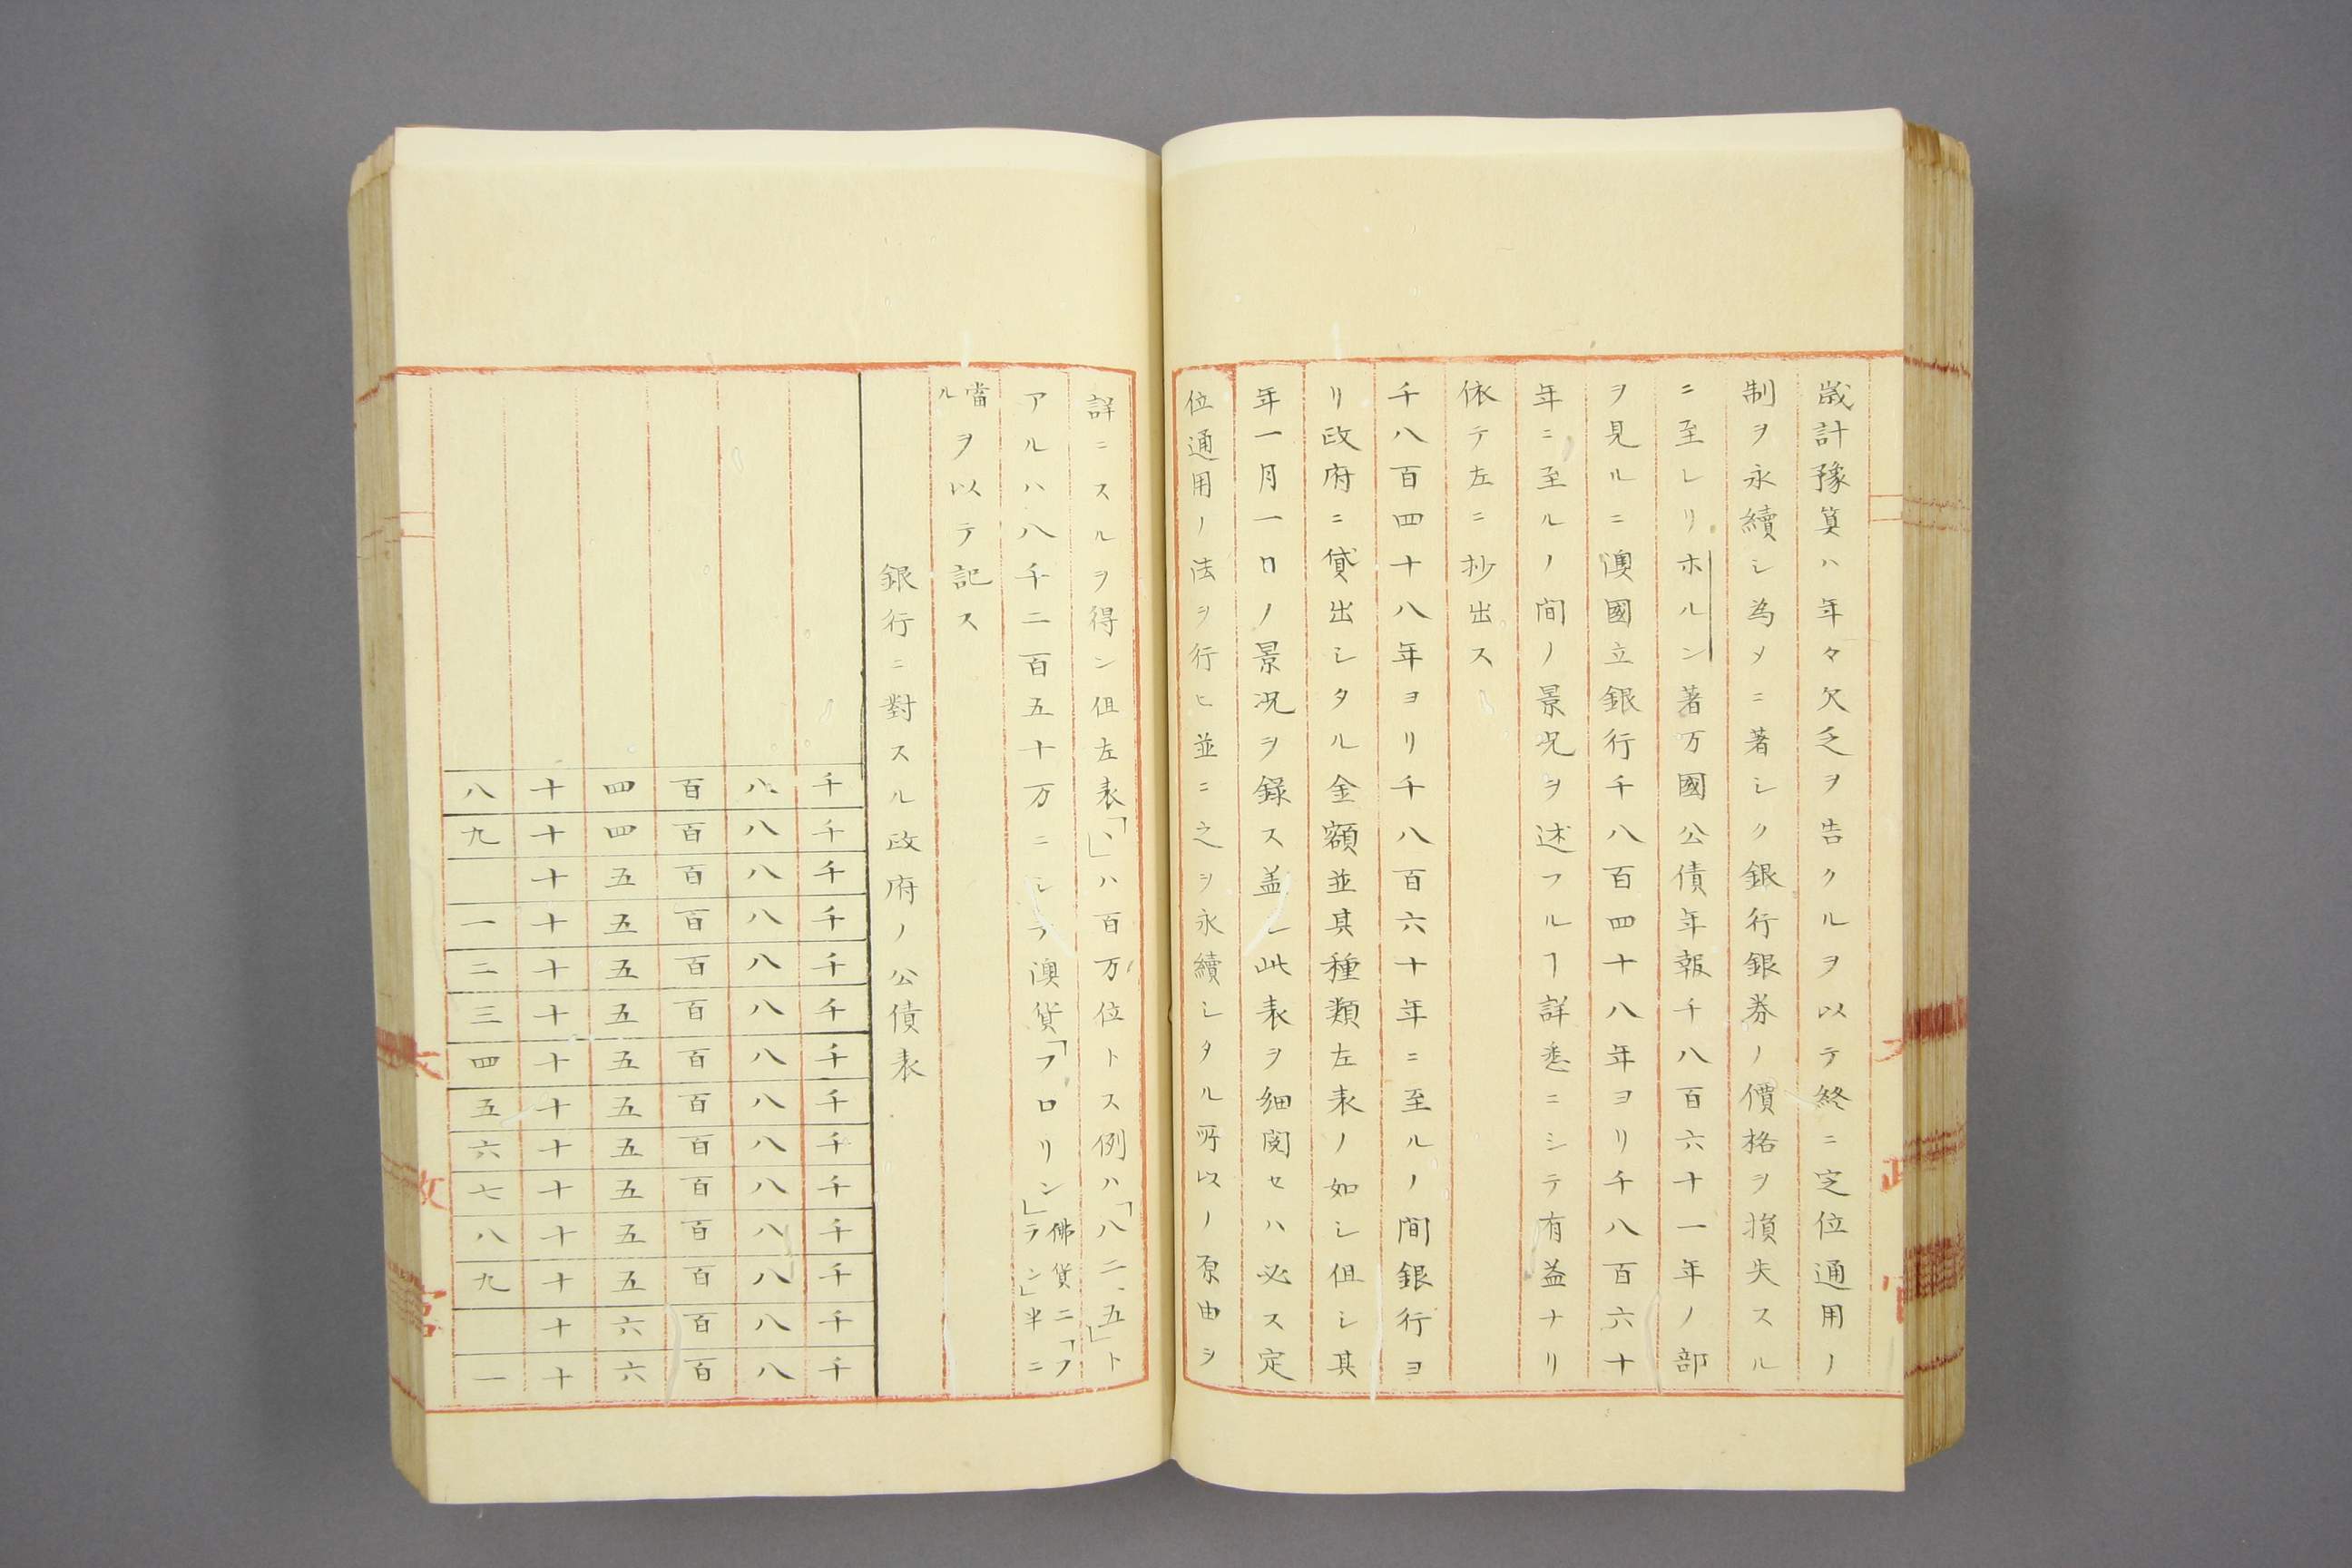 歳計豫算ハ年々欠乏ヲ告クルヲ以テ終ニ定位通用ノ
制ヲ永續シ為メニ著シク銀行銀券ノ價格ヲ損失スル
ニ至レリホルン著万國公債年報千八百六十一年ノ部
ヲ見ルニ澳國立銀行千八百四十八年ヨリ千八百六十
年ニ至ルノ間ノ景況ヲ述フルヿ詳悉ニシテ有益ナリ
依テ左ニ抄出ス
千八百四十八年ヨリ千八百六十年ニ至ルノ間銀行ヨ
リ政府ニ貸出シタル金額並其種類左表ノ如シ但シ其
年一月一日ノ景況ヲ錄ス盖シ此表ヲ細閲セハ必ス定
位通用ノ法ヲ行ヒ並ニ之ヲ永續シタル所以ノ原由ヲ
詳ニスルヲ得ン但左表「、」ハ百万位トス例ハ「八二、五」ト
アルハ八千二百五十万ニシテ澳貨「フロリン」佛貨二「フラン」半ニ
當ルヲ以テ記ス
銀行ニ對スル政府ノ公債表
千八百四十八
千八百四十九
千八百五十
千八百五十一
千八百五十二
千八百五十三
千八百五十四
千八百五十五
千八百五十六
千八百五十七
千八百五十八
千八百五十九
千八百六十
千八百六十一